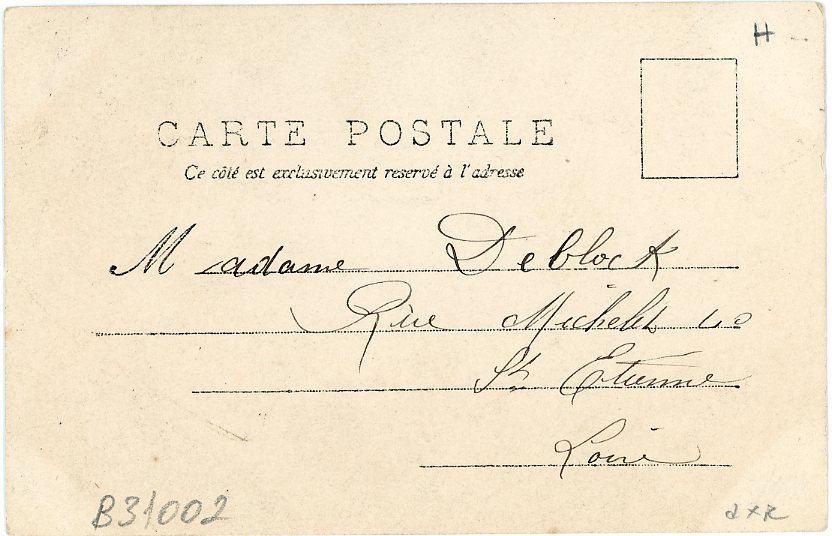 H
CARTE POSTALE
Ce côté est exclusivement reservé à l'adresse
Madame Deblock
Rue Michelet 40
St Etienne
Loire
B31002